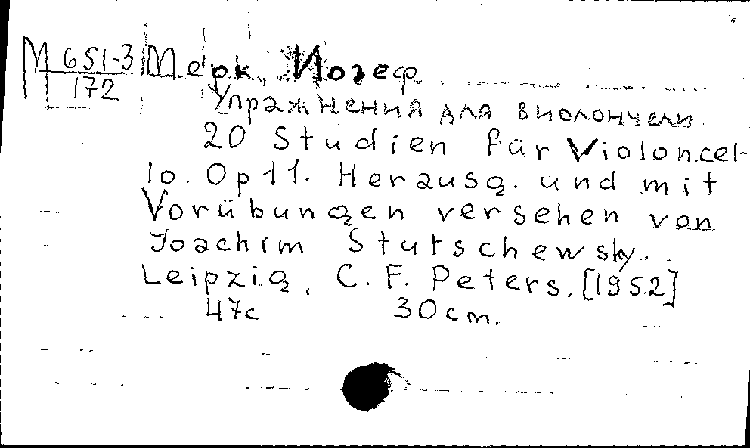 М 651-3 Мерк, Йозеф
172
Упражнения для виолончели.
20 Studien für Violoncel-
lo. Op 11. Herausg. und mit
Vorübungen versehen von
Joachim Stutschewsky.
Leipzig, C. F. Peters. [1952]
47с 30 cm.